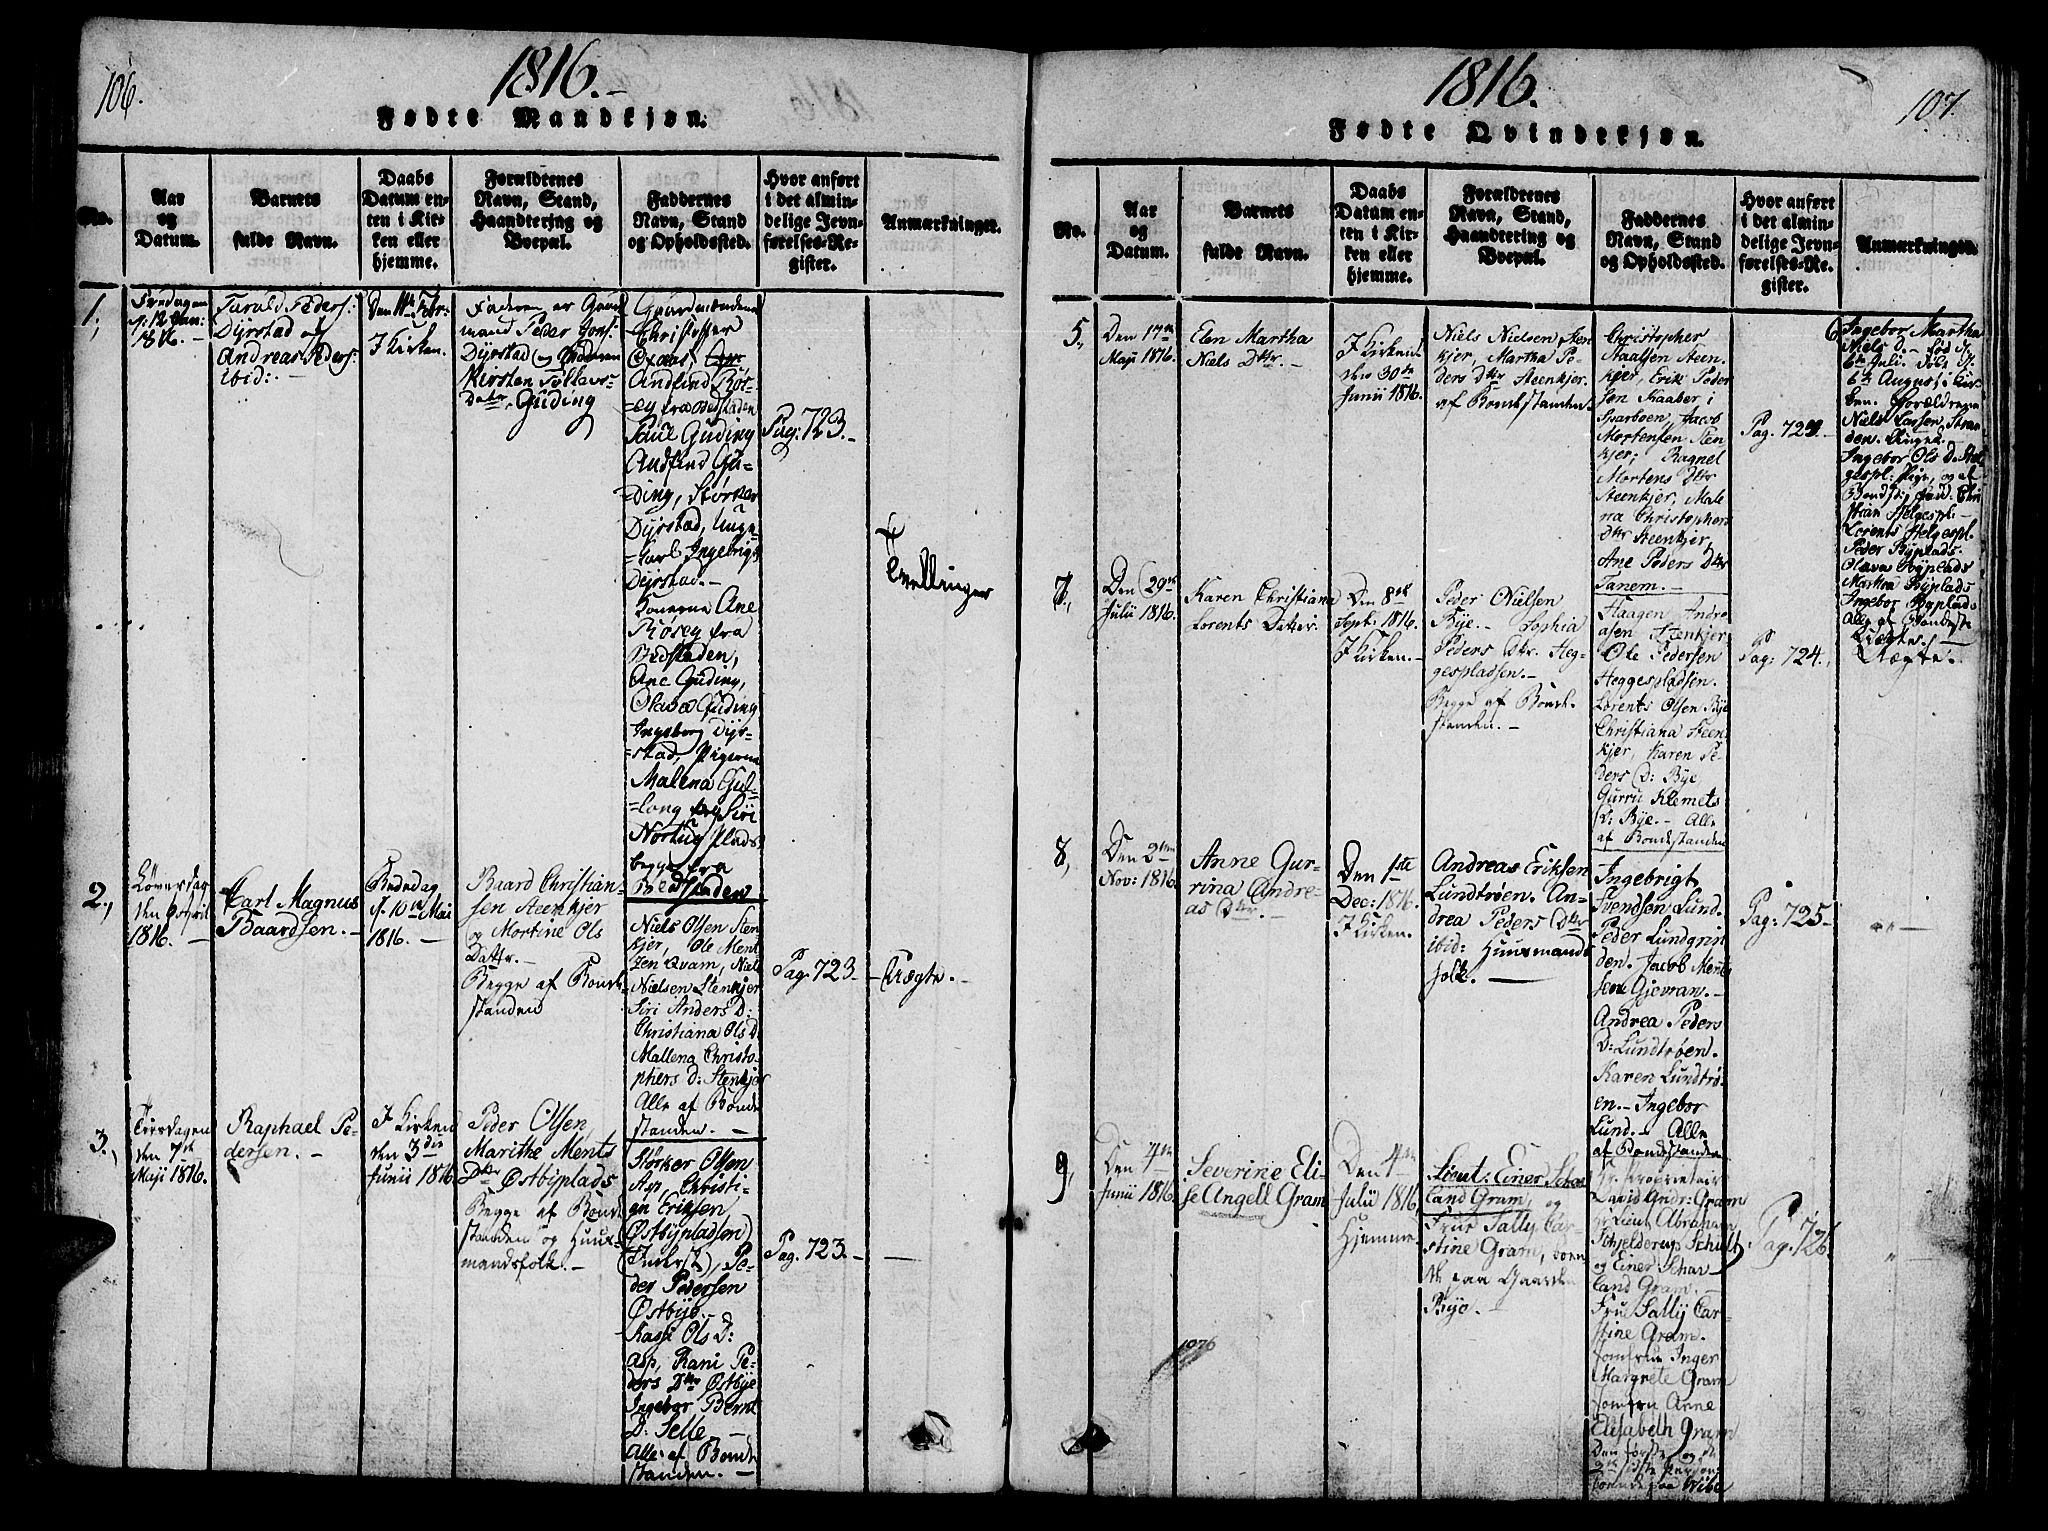 106.
1816.
Fødte Mandkjøn.
No.
Aar
og
Datum.
Barnets
fulde Navn.
Daabs
Datum en-
ten i Kir-
ken eller
hjemme.
Forældrenes
Navn, Stand,
Haandtering og
Boepæl.
Faddernes
Navn, Stand
og Opholdssted.
Hvor anført
i det almin-
delige Jevn-
førelses-Re-
gister.
Anmærkninger.
1.,
Fredagen
12 Jan:
1816.
Taruld Peders:
Dÿrstad og
Andreas Peders:
ibid:
Den 11te Febr:
I Kirken.
Faderen er Gaard
mand Peder Jons:
Dÿrstad og Moderen
Kirsten Tollevs-
Datr, Guding
Gaardmændene
Christopher
Oxaas,
Andfind Rös-
=eg fra Bedstaden
Paul Guding
Andfind Gu-
=ding, Störker
Dÿrstad, Unge-
=Karl Ingebrigt
Deÿrstad.-
Konerne Ane
Rösey fra
Bedstaden,
Ane Guding,
Olava Guding
Ingeborg Dÿr-
=stad, Pigerne
Malena Gul-
=long og Siri
Nortug Plads,
begge fra
Bedstaden
Pag: 723.-
Tvellinger
2.,
Löverdag
den April
1816.
Carl Magnus
Baardsen.-
Bededag
d. 10de Mai
1816.
Baard Christian-
sen Steenkjer
og Mortine Ols
Datter.-
Begge af Bonde-
standen
Niels Olsen Sten
kjer, Ole Ment
zen Qvam, Niels
Nielsen Stenkjer
Siri Anders D:
Christiana Ols D
Mallena Christo-
phers D: Stenkjer
Alle af Bonde
standen.-
Pag. 723.-
Uægte.
3.,
Tirsdagen
den 7de
Maji 1816.
Raphael Pe-
dersen.-
I Kirken
den 3die
Junii 1816
Peder Olsen,
Marithe Ments
Dtr Østbÿplads
Begge af Bonde
standen og Huus-
mandsfolk.-
Störker Olsen
Asp, Christi-
an Eriksen
Østbÿpladsen
(Inderst), Pe-
der Pedersen
Østbÿe.-
Kasse Ols D:
Asp, Rani Pe-
ders Dtr Østbÿe
Ingebor Bernt
D: Selle.-
Alle af Bonde
standen.-
Pag. 723.-
107.
1816.
Fødte Qvindekjøn.
No.
Aar
og
Datum.
Barnets
fulde Navn.
Daabs
Datum en-
ten i Kir-
ken eller
hjemme.
Forældrenes
Navn, Stand,
Haandtering og
Boepæl.
Faddernes
Navn, Stand
og Opholdssted.
Hvor anført
i det almin-
delige Jevn-
førelses-Re-
gister.
Anmærkninger.
5.,
Den 17de
Maji 1816.
Elen Martha
Niels Dtr.-
I Kirken
den 30te
Junii 1816.
Niels Nielsen Sten
kjer, Martha Pe-
ders Dtr Steenkjer.
af Bondestanden.
Christopher
Staalsen Steen
kjer, Erik Peder
sen Kaaber i
Sparboen, Jacob
Mortensen Sten
kjer; Ragnel
Mortens Dtr
Steenkjer, Male
na Christophers
Dtr Steenkjer,
Ane Peders Dtr
Tanem.-
Pag. 724.-
6. Ingebor Martha
Niels D.- fød d.
6te Julii. Døbt d.
6te August, i Kir-
ken. Forældrene
Niels Larsen, Stran
den. Ungk.-
Ingebor Ols D. Hel-
gespl: Pige, og af
Bondst; Fadd. Chri
stian Helgespl.-
Lorents Helgespl.
Peder Bÿplads.
Olava Bÿplads
Martha Bÿplads
Ingebor Bÿplads
Alle af Bondeste
Uægte.-
7.,
Den 29de
Julii 1816.
Karen Christiana
Lorents Datter.
Den 8de
Sept: 1816.
I Kirken.-
Peder Nielsen
Bÿe.- Sophia
Peders Dtr. Heg-
gespladsen.-
Begge af Bonde-
standen.-
Haagen Andre
asen Stenkjer
Ole Pedersen
Heggespladsen.
Lorents Olsen Bÿe
Christiana Steen
kjer, Karen Pe-
ders D: Bÿe
Gurru Klemets
D: Bÿe.- Alle
af Bondestanden
Pag: 724.
Uægte.
8.,
Den 2den
Nov: 1816.
Anne Gur-
rina Andre-
as Dtr.-
Den 1ste
Dec: 1816.
I Kirken.
Andreas Eriksen
Lundtröen. An-
drea Peders Dtr
ibid: Huusmands
folk.
Ingebrigt
Svendsen Lund.
Peder Lundgrin
den. Jacob Ments
sen Gjevran.-
Andrea Peders
D: Lundtröen.
Karen Lundtrö-
en.- Ingebor
Lund.- Alle
af Bondestanden
Pag: 725.-
" " —
9,
Den 4de
Junii 1816.
Severine Eli-
se Angell Gram
Den 4de
Julii 1816,
Hjemme.
Lieut: Einer Schav
land Gram, og
Frue Sally Car-
stine Gram, boen
de paa Gaarden
Bÿe.-
Hr. Proprietair
David Andr: Gram
Hr Lieut Abraham
Schjelderup Schult
og Einer Schav
land Gram.
Fru Sally Car-
stine Gram.
Jomfrue Inger
Margrete Gram
Jomfru Anne
Elisabeth Gram
Den første og
sidste Person
boende paa Wibe
Pag: 726
"
1076